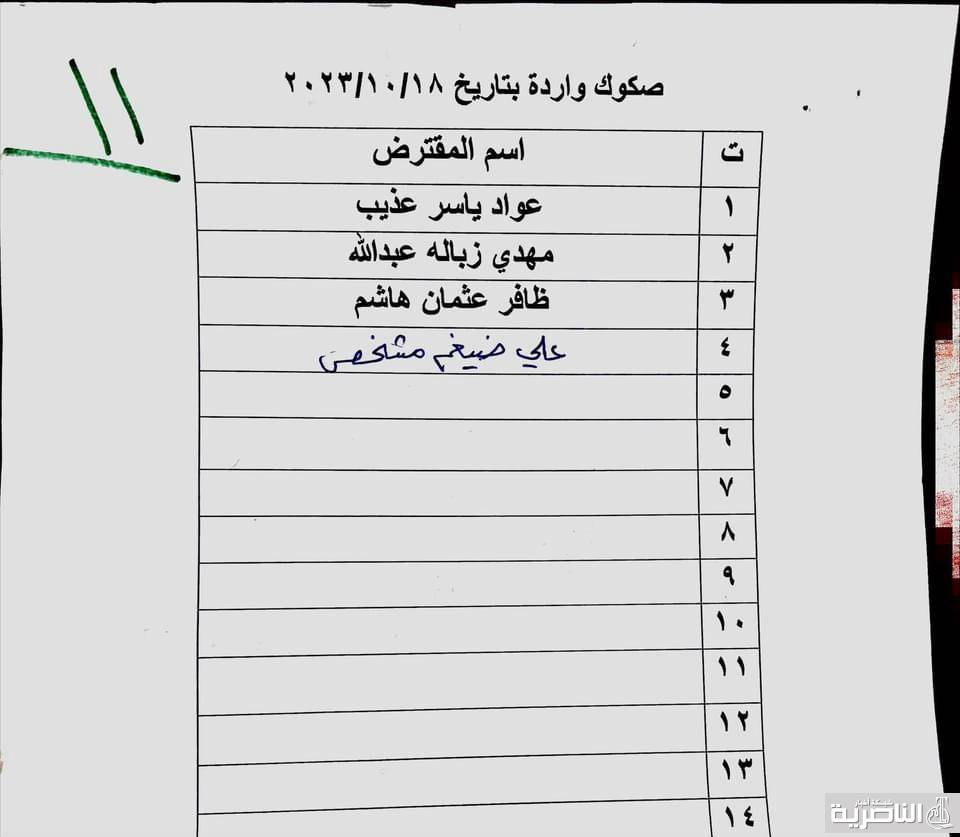 ١١
صكوك واردة بتاريخ ٢٠٢٣/١٠/١٨
ت اسم المقترض
١ عواد ياسر عذيب
٢ مهدي زباله عبدالله
٣ ظافر عثمان هاشم
٤ علي ضيغم مشخص
٥
٦
٧
٨
٩
١٠
١١
١٢
١٣
١٤
شبكة أخبار
الناصرية